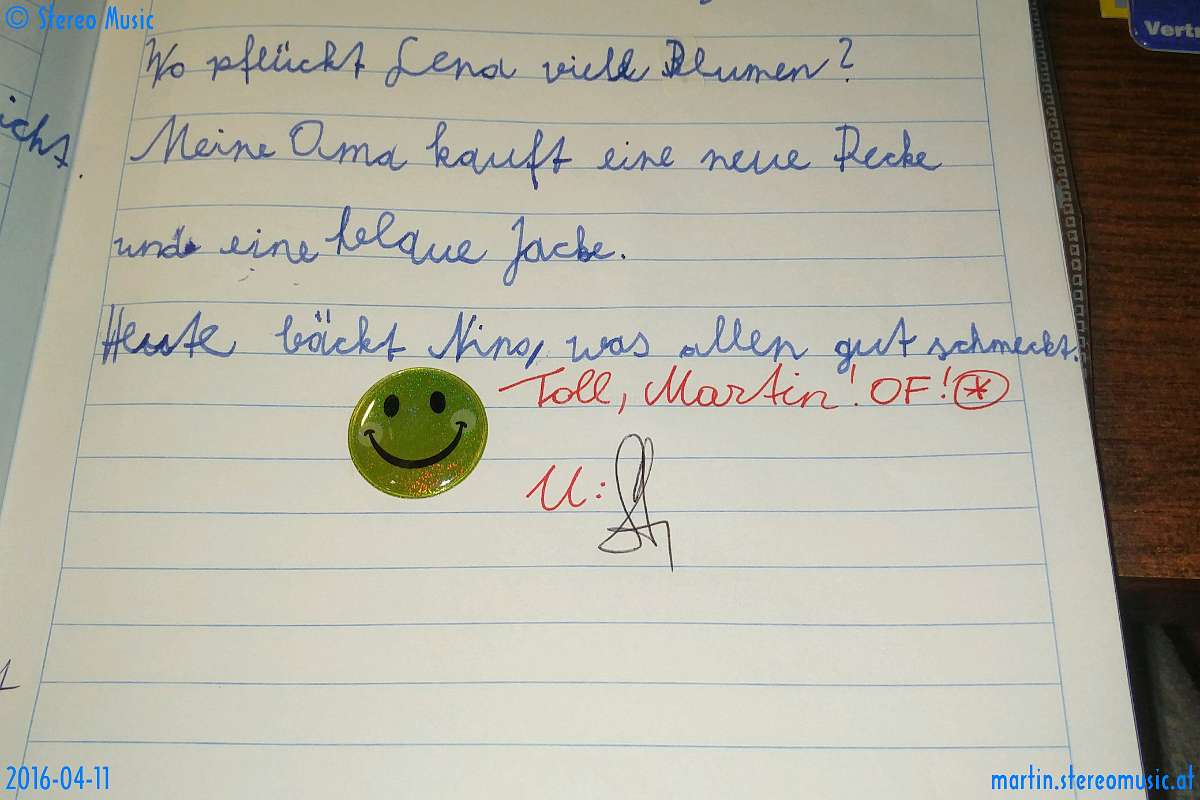 © Stereo Music
Vertr
Wo pflückt Lena viele Blumen?
icht.
Meine Oma kauft eine neue Decke
und eine blaue Jacke.
Heute bäckt Nino, was allen gut schmeckt.
Toll, Martin! OF! *
U:
2016-04-11
martin.stereomusic.at